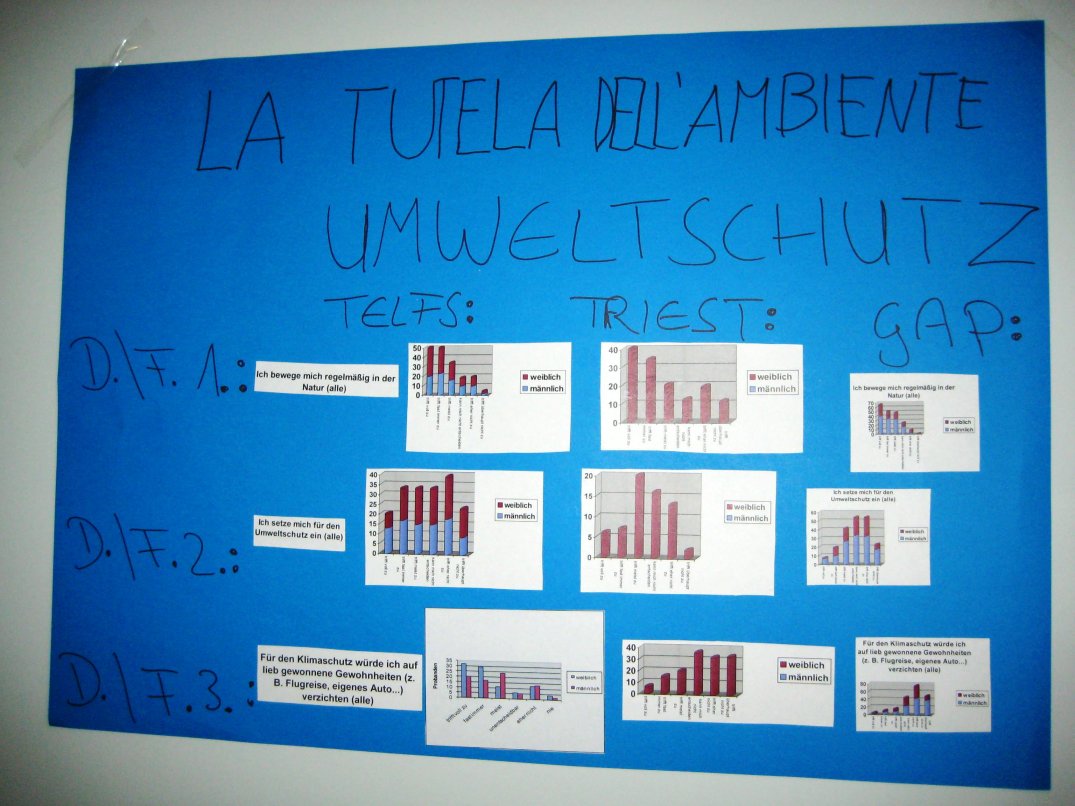 LA TUTELA DELL'AMBIENTE
UMWELTSCHUTZ
TELFS: TRIEST: GAP:
D./F. 1.:
Ich bewege mich regelmäßig in der
Natur (alle)
50
40
30
20
10
0
weiblich
männlich
40
30
20
10
0
weiblich
männlich
Ich bewege mich regelmäßig in der
Natur (alle)
weiblich
männlich
D./F.2.:
Ich setze mich für den
Umweltschutz ein (alle)
40
35
30
25
20
15
10
5
0
weiblich
männlich
20
15
10
5
0
weiblich
männlich
Ich setze mich für den
Umweltschutz ein (alle)
60
50
40
30
20
10
0
weiblich
männlich
D./F.3.:
Für den Klimaschutz würde ich auf
lieb gewonnene Gewohnheiten (z.
B. Flugreise, eigenes Auto...)
verzichten (alle)
Probanden
35
30
25
20
15
10
5
0
trifft voll zu
fast immer
meist
unentscheidbar
eher nicht
nie
weiblich
männlich
40
30
20
10
0
weiblich
männlich
Für den Klimaschutz würde ich
auf lieb gewonnene Gewohnheiten
(z. B. Flugreise, eigenes Auto...)
verzichten (alle)
80
60
40
20
0
weiblich
männlich